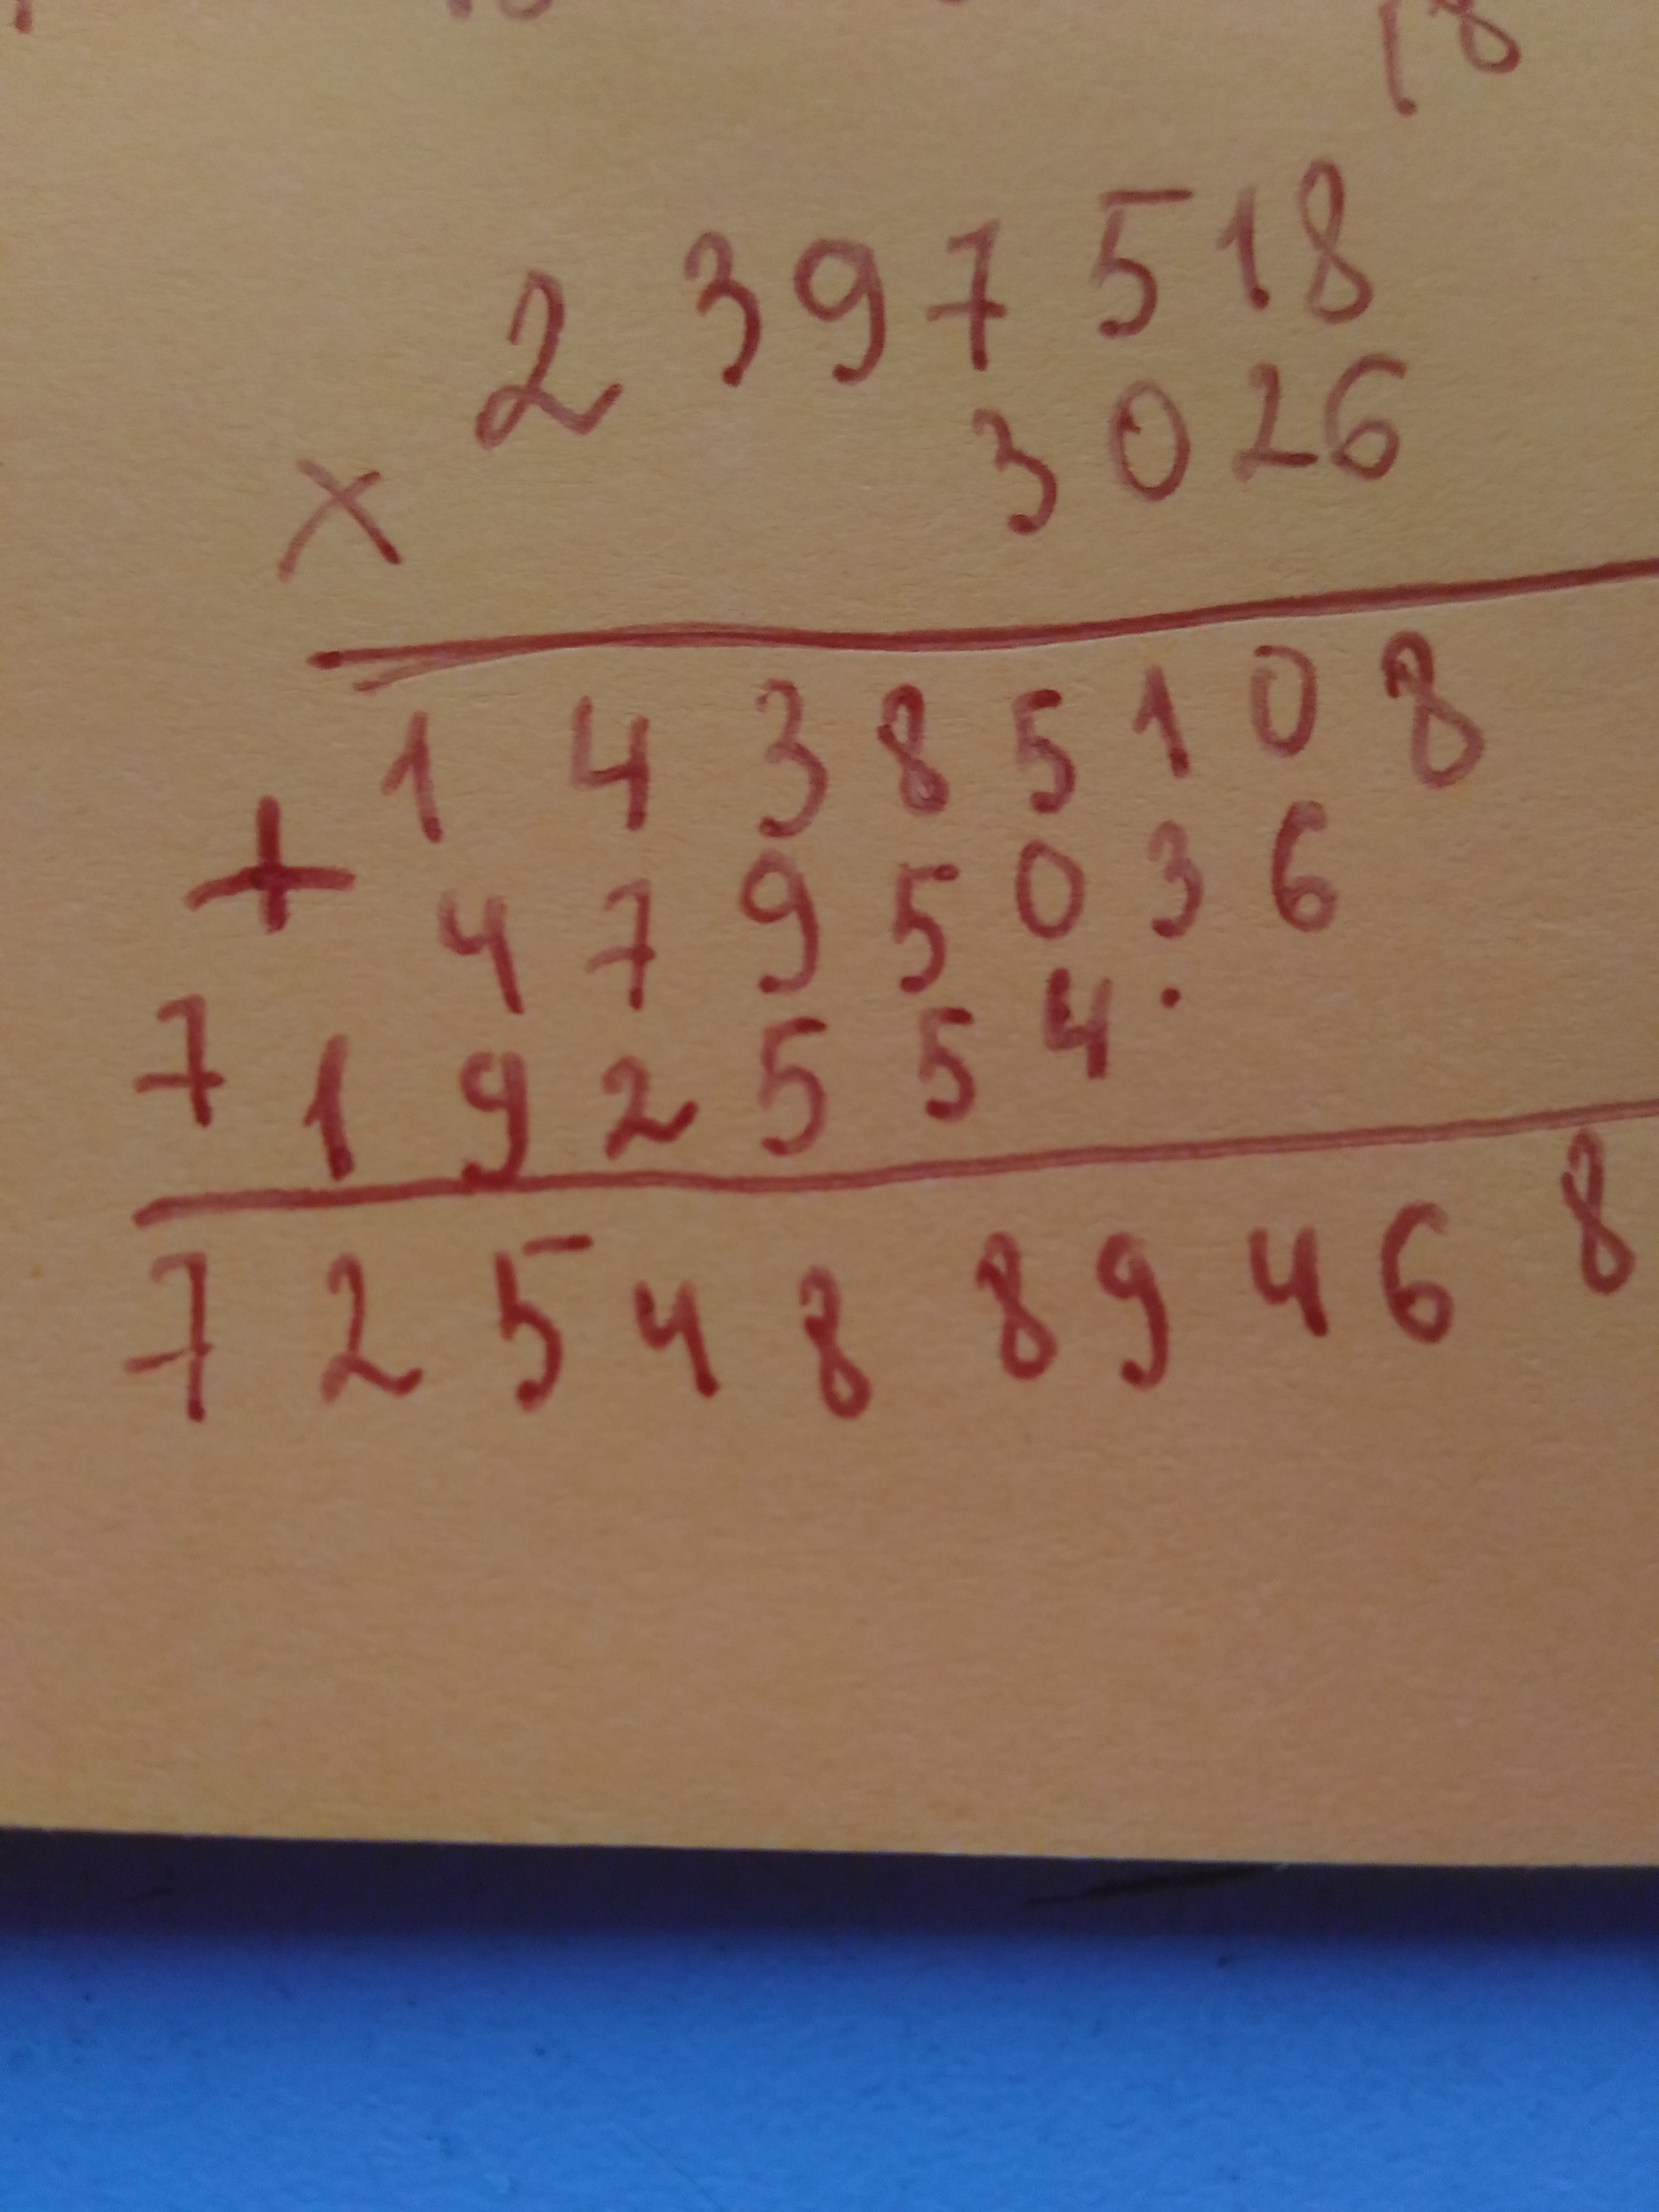 18
2 3 9 7 5 1 8
× 3 0 2 6
1 4 3 8 5 1 0 8
+ 4 7 9 5 0 3 6
7 1 9 2 5 5 4 .
7 2 5 4 8 8 9 4 6 8